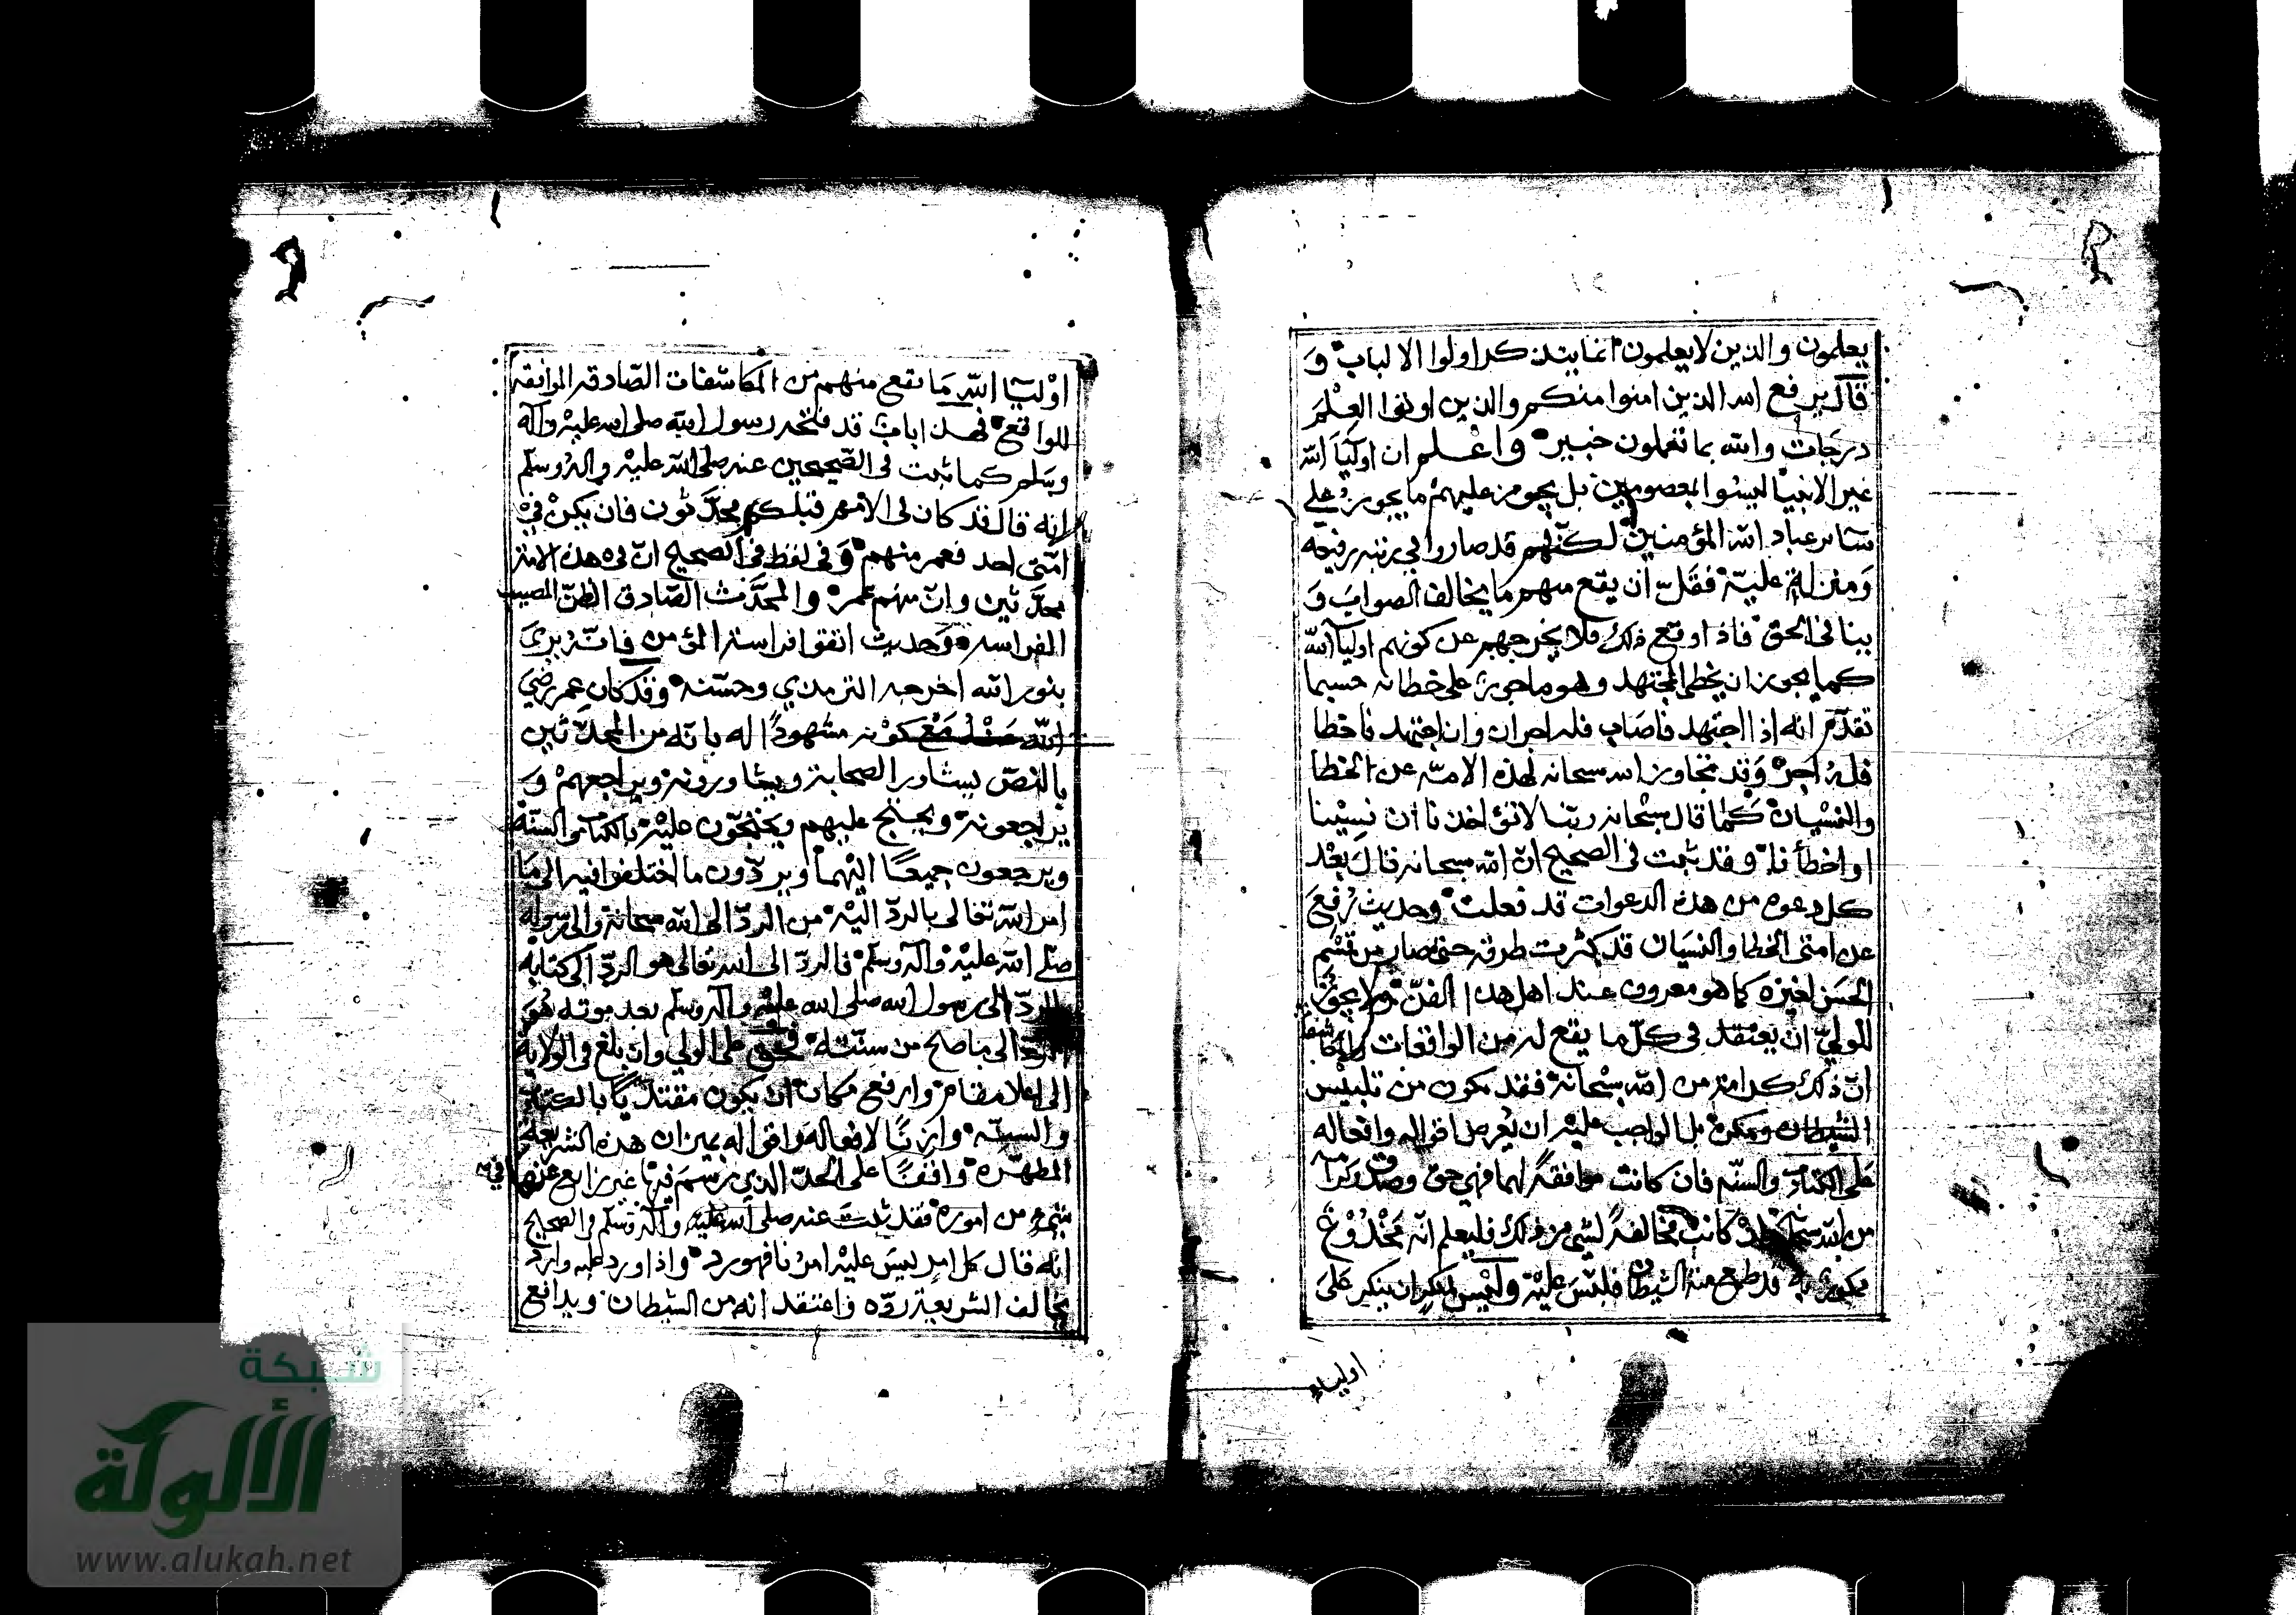 يعلمون والذين لا يعلمون انما يتذكر اولوا الالباب و
قال يرفع الله الذين امنوا منكم والذين اوتوا العلم
درجات والله بما تعملون خبير واعلم ان اولياء الله
غير الانبياء ليسوا بمعصومين بل يجوز عليهم ما يجوز على
سائر عباد الله المؤمنين لكنهم قد صاروا في رتبة رفيعة
ومنزلة علية فقل ان يقع منهم ما يخالف الصواب و
ينافي الحق فاذا وقع ذلك فلا يخرجهم عن كونهم اولياء الله
كما يجوز ان يخطي المجتهد وهو ماجور على خطائه حسبما
تقدم انه اذا اجتهد فاصاب فله اجران وان اجتهد فاخطا
فله اجر وقد تجاوز الله سبحانه لهذه الامة عن الخطا
والنسيان كما قال سبحانه ربنا لا تؤاخذنا ان نسينا
او اخطأنا وقد ثبت في الصحيح ان الله سبحانه قال بعد
كل دعوه من هذه الدعوات قد فعلت وحديث رفع
عن امتى الخطا والنسيان قد كثرت طرقه حتى صار من قسم
الحسن لغيره كما هو معروف عند اهل هذا الفن ولا يجوز
للولي ان يعتقد فى كل ما يقع له من الواقعات والمكاشفات
ان ذلك كرامة من الله سبحانه فقد يكون من تلبيس
الشيطان ومكره بل الواجب عليه ان يعرض اقواله وافعاله
على الكتاب والسنة فان كانت موافقة لهما فهي حق وصدق وكرامة
من الله سبحانه وان كانت مخالفة لشئ من ذلك فليعلم انه مخدوع
ممكور به قد طمع منه الشيطان فلبس عليه وليس لمنكر ان ينكر على
اولياء
اولياء الله ما يقع منهم من المكاشفات الصادقه الموافقه
للواقع فهذا باب قد فتحه رسول الله صلى الله عليه وآله
وسلم كما ثبت فى الصحيحين عنه صلى الله عليه وآله وسلم
انه قال قد كان فى الامم قبلكم محدثون فان يكن في
امتى احد فعمر منهم وفى لفظ في الصحيح ان في هذه الامة
محدثين وان منهم عمر والمحدث الصادق الظن المصيب
الفراسه وحديث اتقوا فراسة المؤمن فانه يرى
بنور الله اخرجه الترمذي وحسنه وقد كان عمر رضي
الله عنه مع كونه مشهودا له بانه من المحدثين
بالنص يشاور الصحابة ويشاورونه ويراجعهم و
يراجعونه ويحتج عليهم ويحتجون عليه بالكتاب والسنة
ويرجعون جميعا اليهما ويردون ما اختلفوا فيه الى ما
امر الله تعالى بالرد اليه من الرد الى الله سبحانه والى رسوله
صلى الله عليه وآله وسلم فالرد الى الله تعالى هو الرد الى كتابه
والرد الى رسول الله صلى الله عليه وآله وسلم بعد موته هو
الرد الى ما صح من سنته فحق على الولي وان بلغ في الولاية
الى اعلا مقام وارفع مكان ان يكون مقتديا بالكتاب
والسنة وازنا لافعاله واقواله بميزان هذه الشريعة
المطهره واقفا على الحد الذي رسم فيها غير زايغ عنها في
شئ من اموره فقد ثبت عنه صلى الله عليه وآله وسلم في الصحيح
انه قال كل امر ليس عليه امرنا فهو رد واذا ورد عليه وارد
يخالف الشريعة رده واعتقد انه من الشيطان ويدافع
شبكة
الألوكة
www.alukah.net